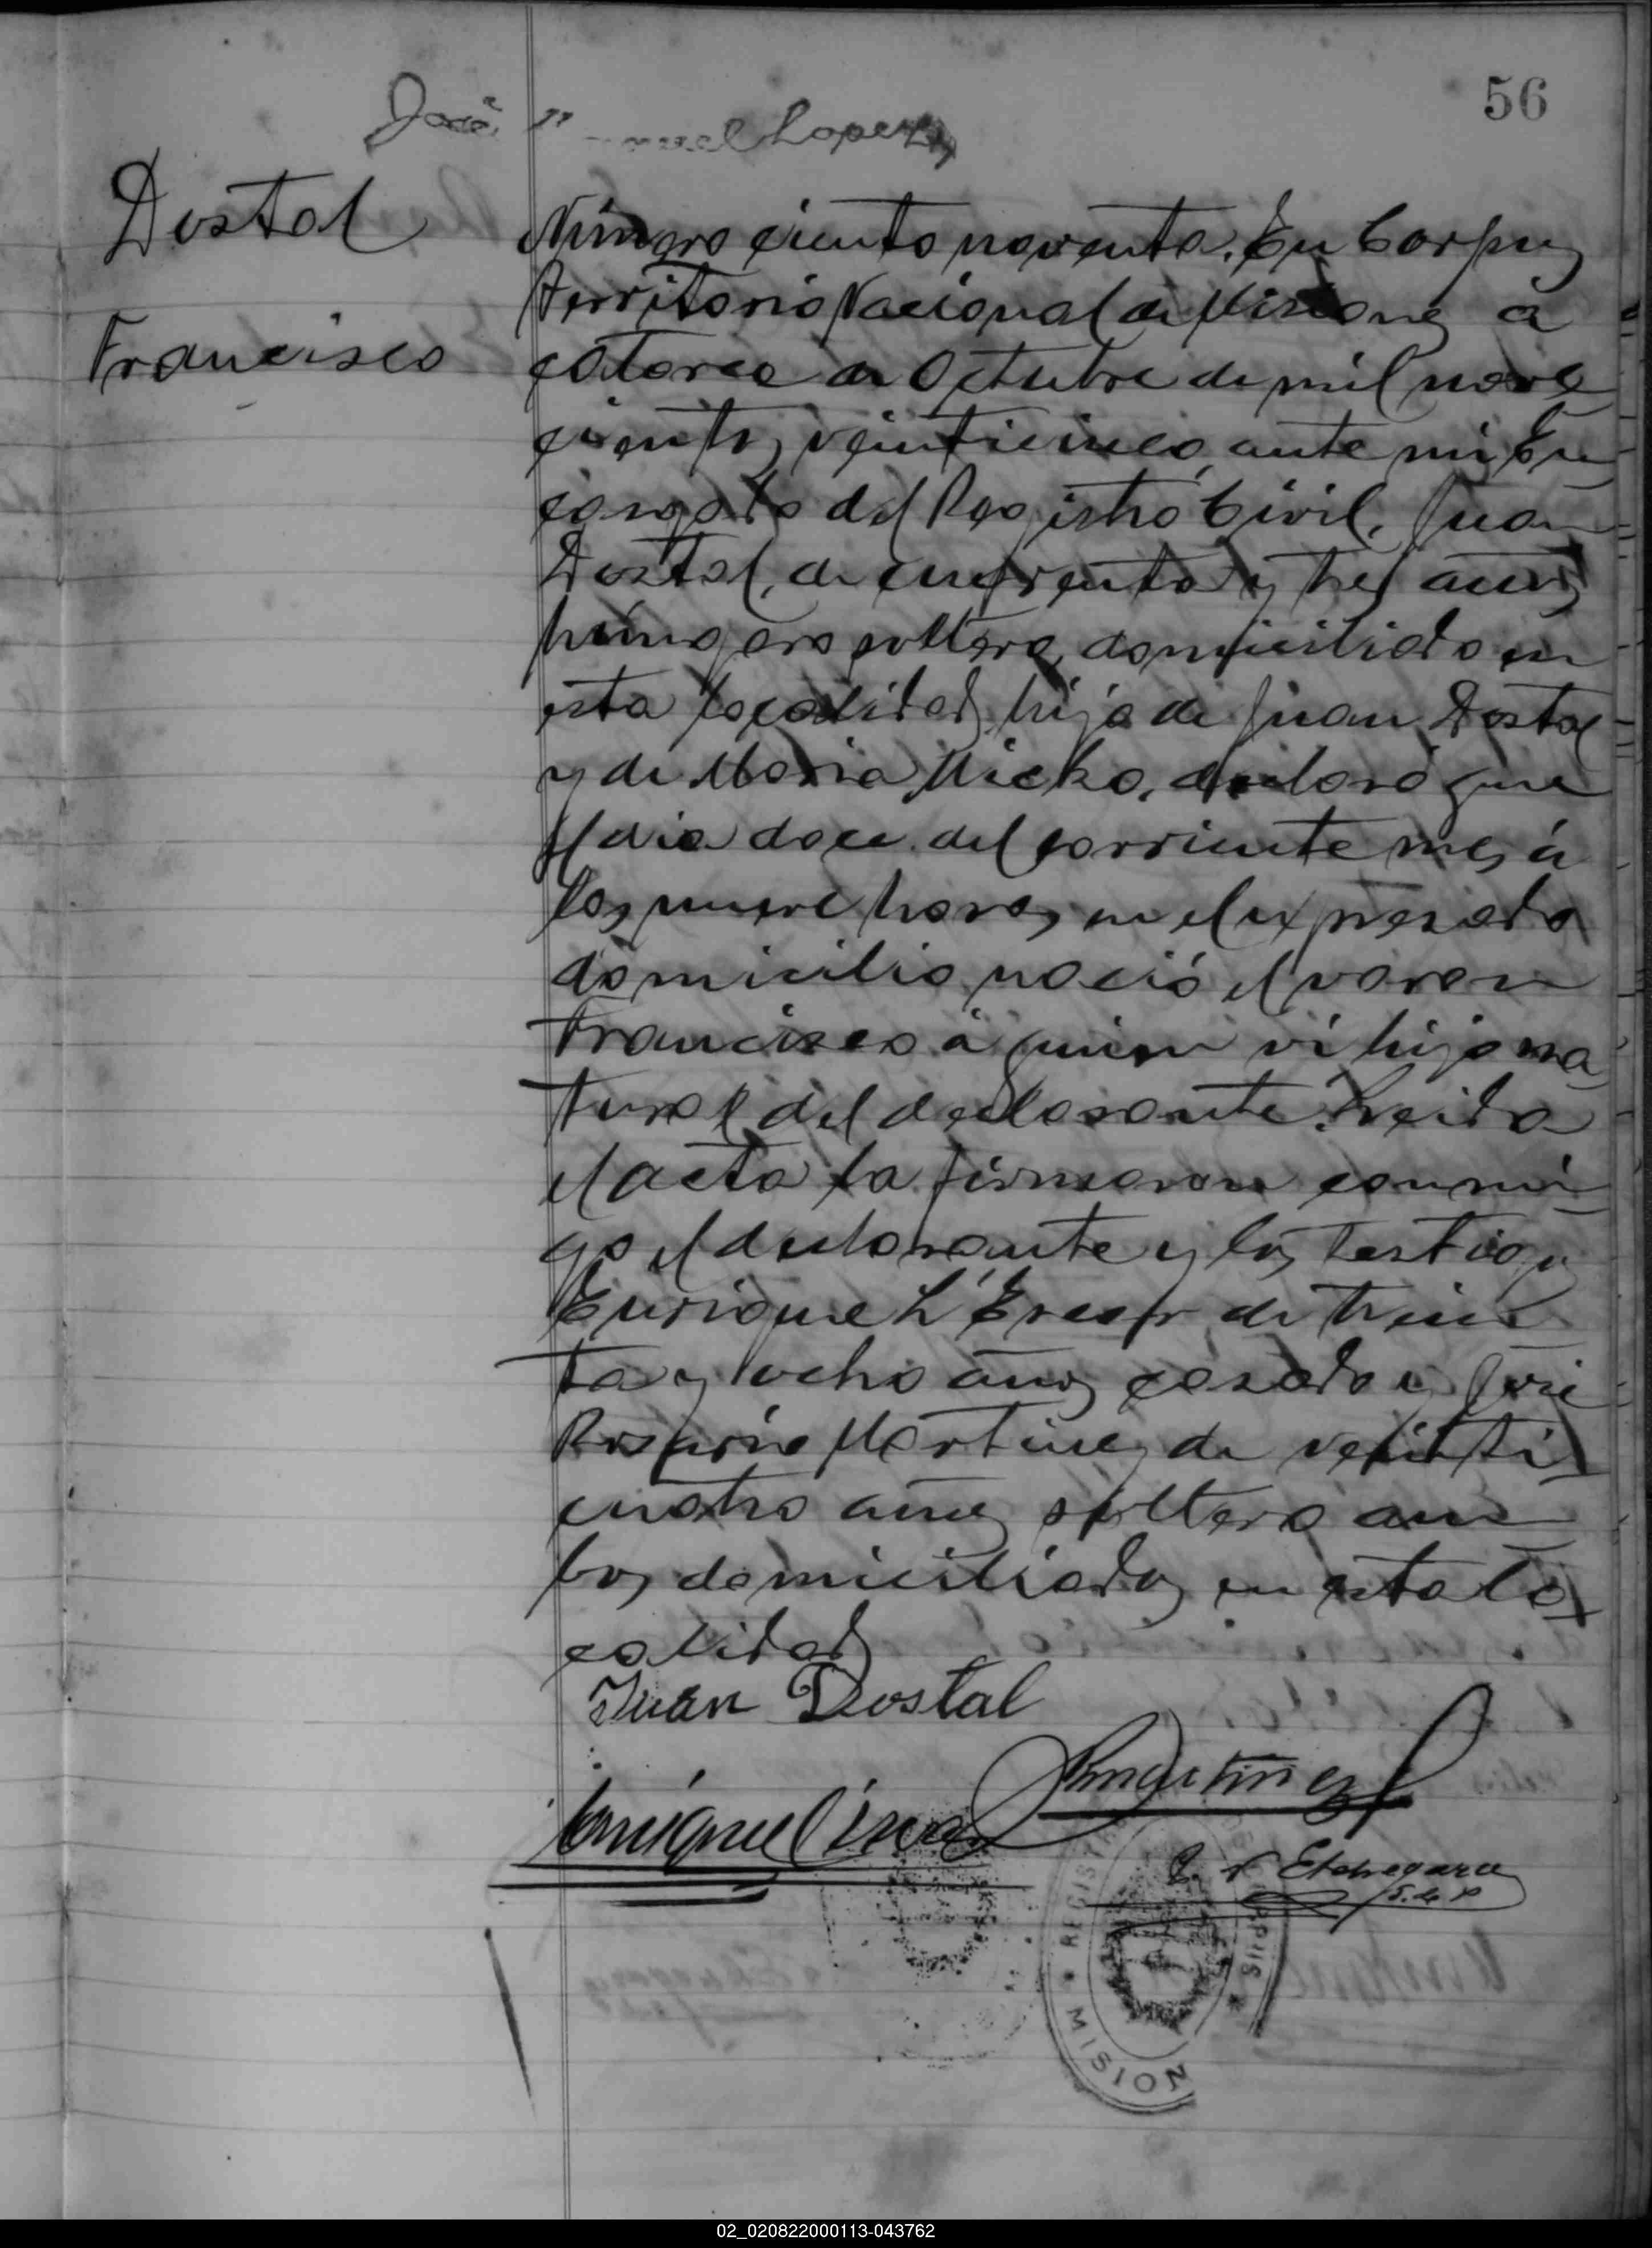 56
José Manuel Lopez
Dostal
Francisco
Número ciento noventa. En Corpus
Territorio Nacional de Misiones á
catorce de Octubre de mil nove
cientos veinticinco, ante mi En
cargado del Registro Civil, Juan
Dostal, de cuarenta y tres años
húngaro soltero, domiciliado en
esta localidad, hijo de Juan Dostal
y de Maria Micko, declaró que
el dia doce del corriente mes á
las nueve horas en el expresado
domicilio nació el varon
Francisco á quien vi hijo na
tural del declarante. Leida
el acta la firmaron conmi
go el declarante y los testigos
Enrique de trein
ta y ocho años casado y José
Martinez de veinti
cuatro años soltero am
bos domiciliados en esta lo
calidad
Juan Dostal
Martinez
Enrique
Etchegaray
REGISTRO
MISION